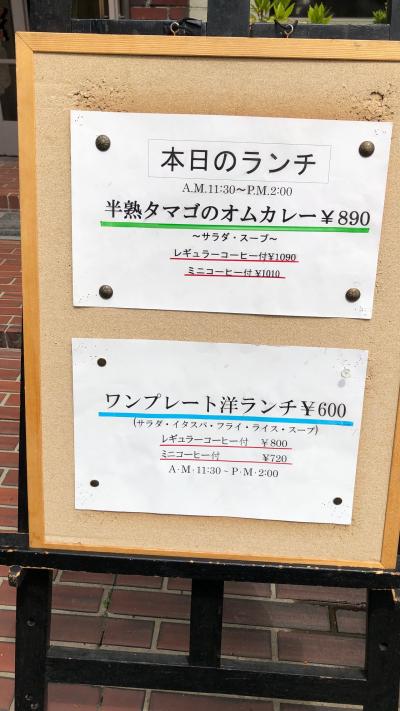 本日のランチ
A.M.11:30～P.M.2:00
半熟タマゴのオムカレー￥890
～サラダ・スープ～
レギュラーコーヒー付¥1090
ミニコーヒー付¥1010
ワンプレート洋ランチ￥600
(サラダ・イタスパ・フライ・ライス・スープ)
レギュラーコーヒー付 ￥800
ミニコーヒー付 ¥720
A･M･11:30～P･M･2:00